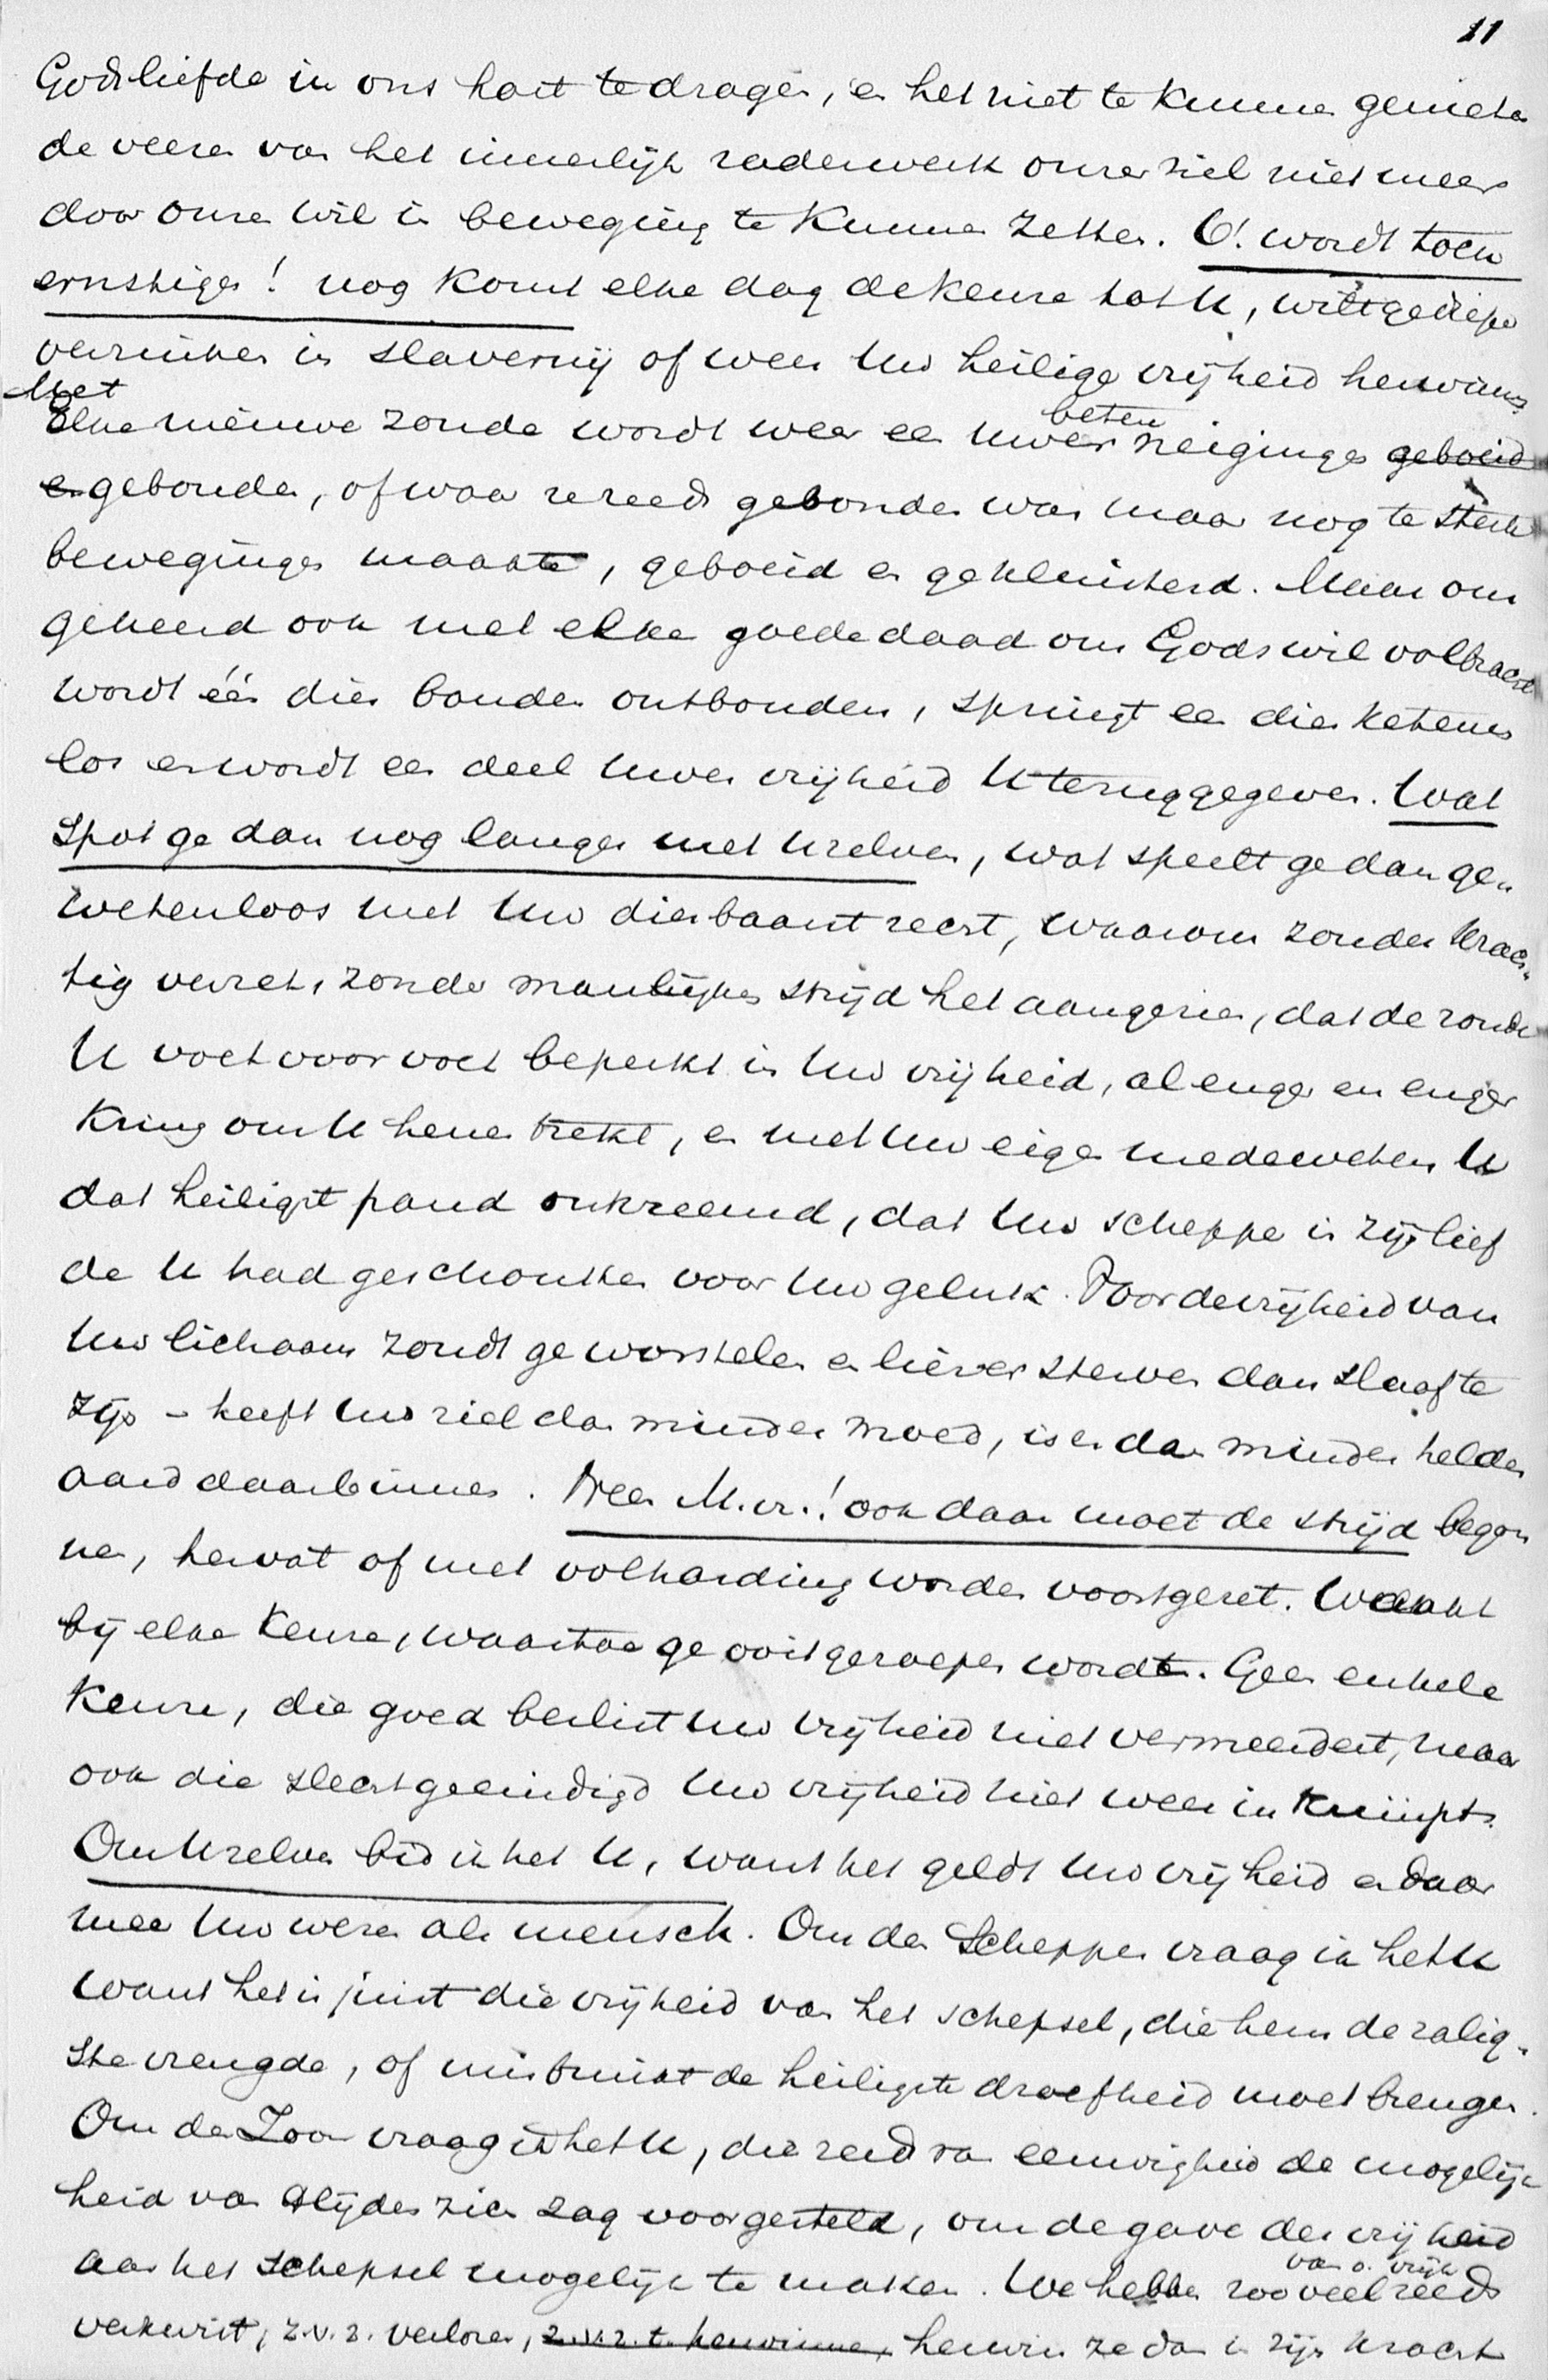 11
Gods liefde in ons hart te dragen, en het niet te kunnen genieten
de veeren van het innerlijk raderwerk onzer ziel niet meer
door onze wil in beweging te kunnen zetten. O! wordt toch
ernstiger! nog komt elke dag de keuze tot U, wilt ge dieper
verzinken in slavernij of weer Uw heilige vrijheid herwinnen
Met
Elke nieuwe zonde wordt weer een Uwer beten neigingen geboeid
en gebonden, of waar ze reeds gebonden was maar nog te sterke
bewegingen maakte, geboeid en gekluisterd. Maar om
gekeerd ook met elke goede daad om Gods wil volbracht
wordt één dier banden ontbonden, springt een dier ketens
los en wordt een deel Uwer vrijheid U teruggegeven. Wat
spot ge dan nog langer met Uzelven, wat speelt ge dan ge„
wetenloos met Uw dierbaarst recht, waarom zonder krach„
tig verzet, zonder manlijken strijd het aangezien, dat de zonde
U voet voor voet beperkt in Uw vrijheid, al enger en enger
kring om U henen trekt, en met Uw eigen medeweten U
dat heiligst pand ontvreemd, dat Uw schepper in zijn lief
de U had geschonken voor Uw geluk. Voor de vrijheid van
Uw lichaam zoudt ge worstelen en liever sterven dan slaaf te
zijn – heeft Uw ziel dan minder moed, is er dan minder helden
aard daarbinnen. Neen M.vr.! ook daar moet de strijd begon
nen, hervat of met volharding worden voortgezet. Waakt
bij elke keuze, waartoe ge ooit geroepen wordt. Geen enkele
keuze, die goed beslist Uw vrijheid niet vermeerdert, maar
ook die slecht geeindigd Uw vrijheid niet weer in krimpt.
Om Uzelven bid ik het U, want het geldt Uw vrijheid en daar
mee Uw wezen als mensch. Om den Schepper vraag ik het U
want het is juist die vrijheid van het schepsel, die hem de zalig„
ste vreugde, of misbruikt de heiligste droefheid moet brengen.
Om den Zoon vraag ik het U, die reeds van eeuwigheid de mogelijk
heid van lijden zich zag voorgesteld, om de gave der vrijheid
aan het schepsel mogelijk te maken. We hebben zooveel van o. vrijh. reeds
verkwist, z.v.z. verloren, z.v.z.t. herwinnen, herwin ze dan in zijn kracht